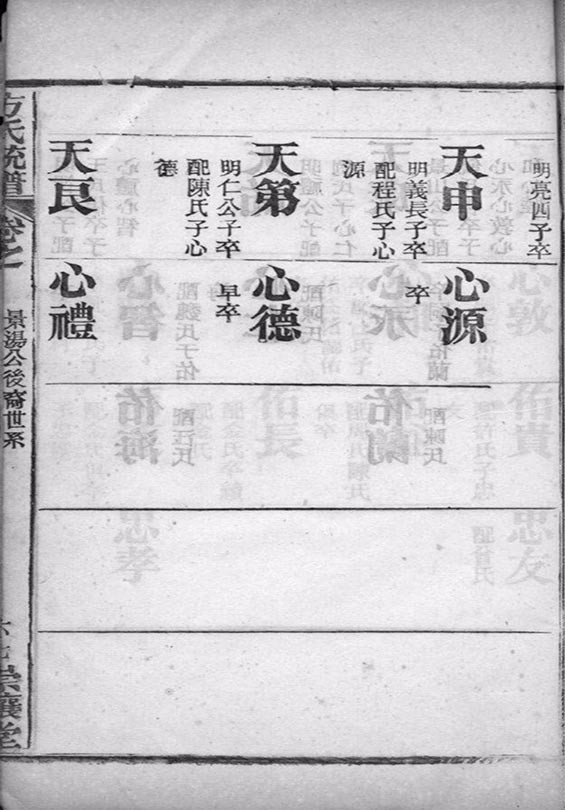 明亮四子卒
天申
明義長子卒
配程氏子心
源
天弟
明仁公子卒
配陳氏子心
德
天艮
心源
卒
心德
早卒
心禮
方氏統譜
卷之一
景湯公後裔世系